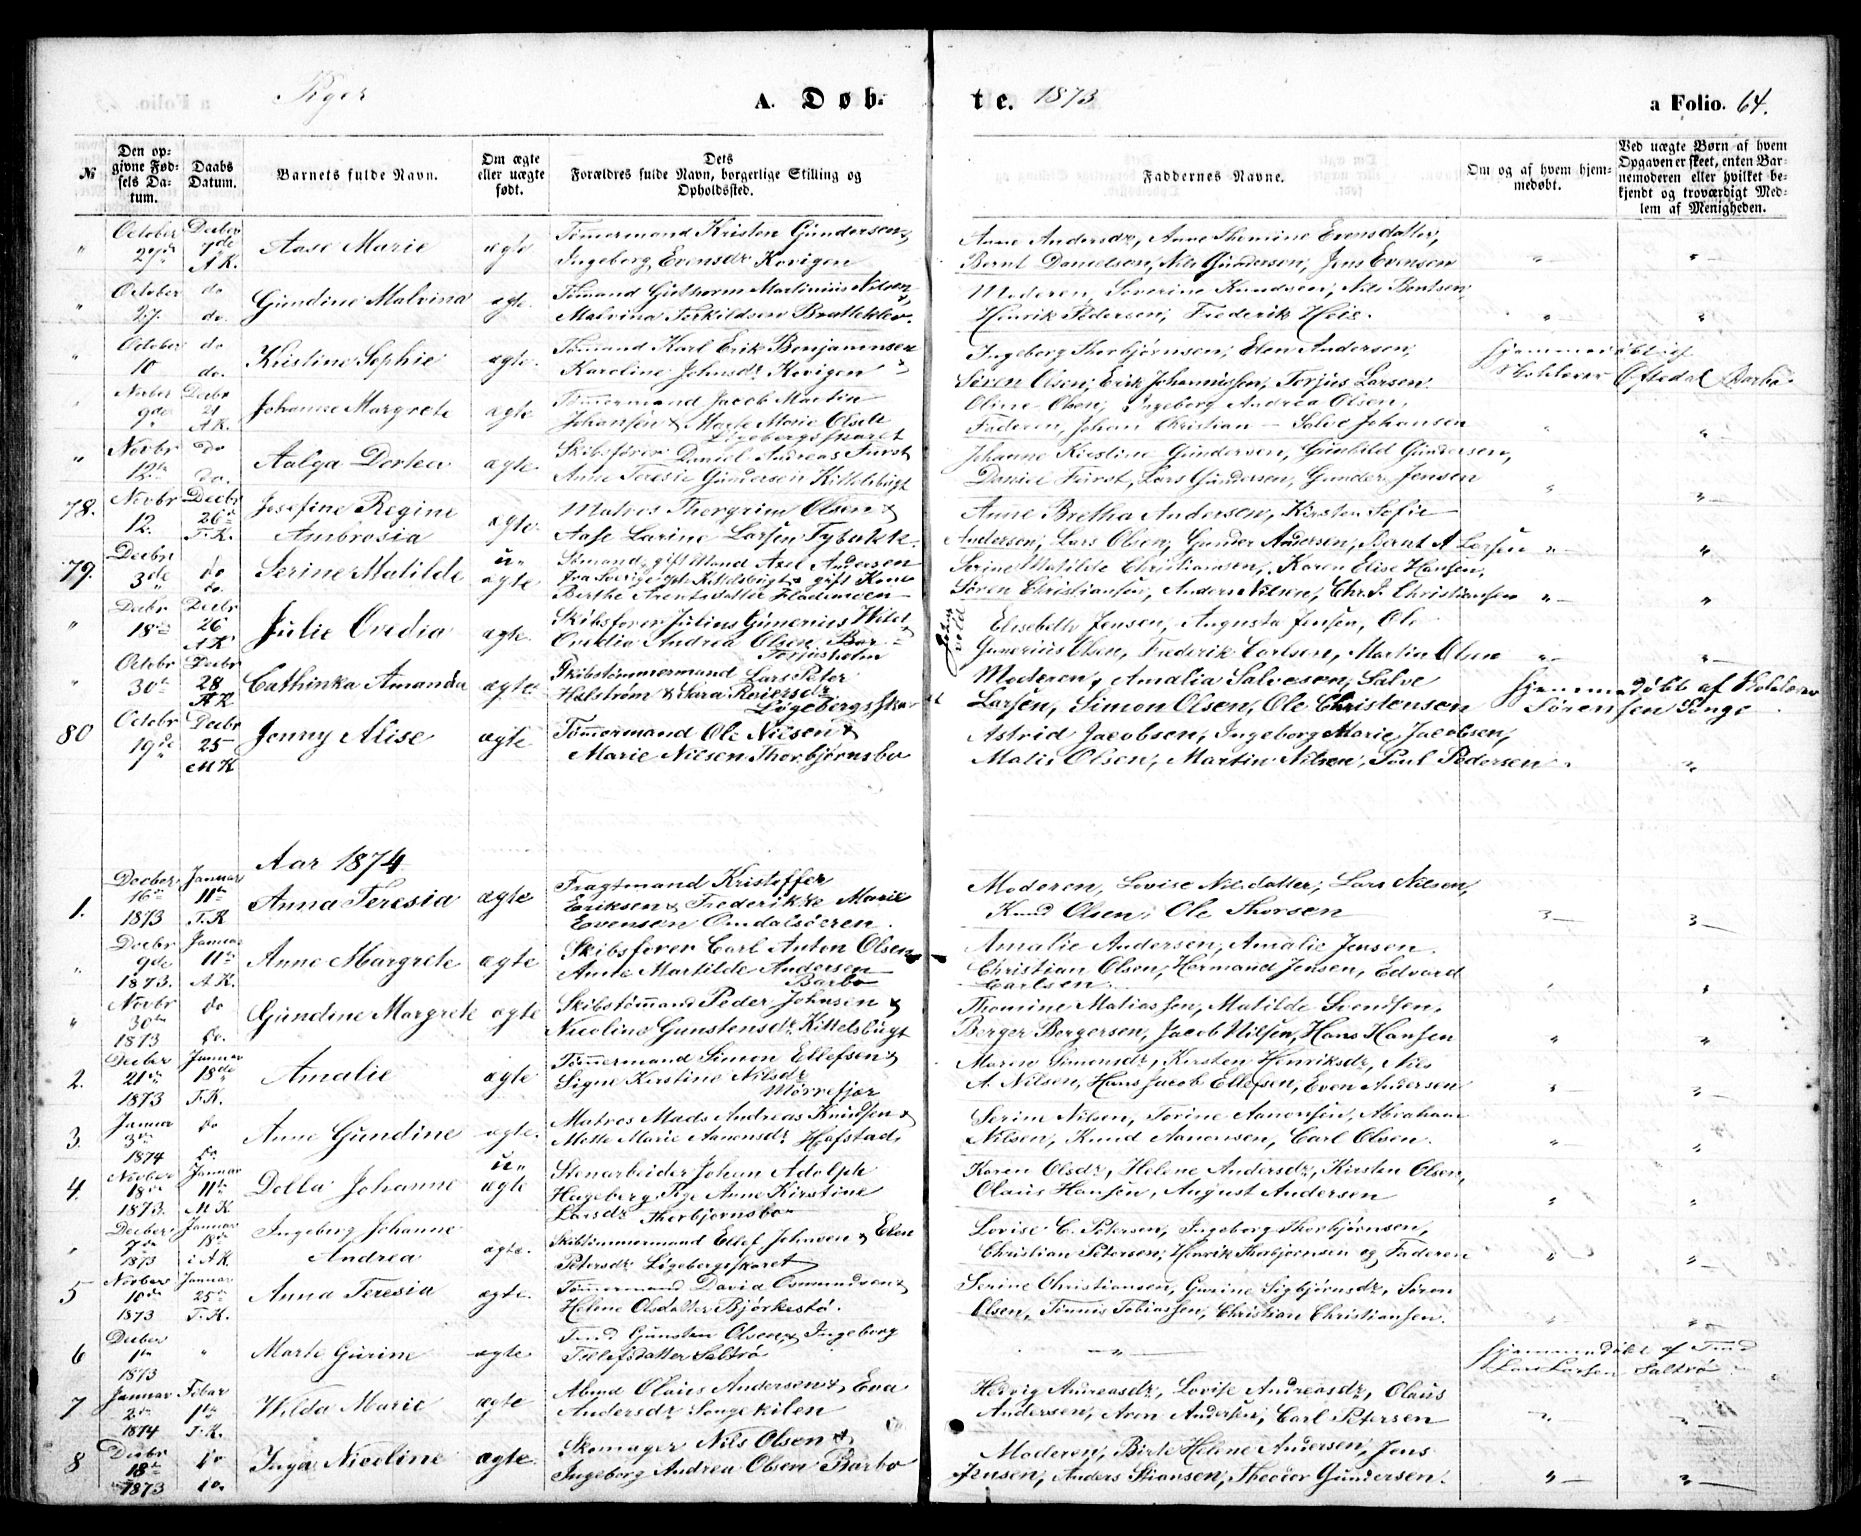 Piger A. Døb- te. 1873 a Folio. 64.
№ Den opgivne Fødsels Datum. Daabs Datum. Barnets fulde Navn. Om ægte eller uægte født. Dets Forældres fulde Navn, borgerlige Stilling og Opholdssted. Faddernes Navne. Om og af hvem hjemmedøbt. Ved uægte Børn af hvem Opgaven er skeet, enten Barnemoderen eller hvilket bekjendt og troværdigt Medlem af Menigheden.
" October 27de Decber 7de A.K. Aase Marie ægte Tømmermand Kristen Gundersen & Ingeborg Evensdr Kovigen
Anne Andersdr, Anne Thomine Evensdatter,
Bernt Danielsen, Nils Gundersen, Jens Evensen
" October 27. do do. Gundine Malvina ægte. Tømand Guthorm Martinius Nilsen & Malvina Terkildsen Bratteklev.
Moderen, Severine Knudsen, Nils Bentsen,
Henrik Pedersen, Frederik Heie.
" October 10 do do. Kristine Sophie ægte. Tømand Karl Erik Benjaminsen Karoline Johnsdr Kovigen
Ingeborg Thorbjørnsen, Elen Andersen,
Søren Olsen, Erik Johannissen, Terjus Larsen. hjemmedøbt af Skolelærer Oftedal Barbo
" Novber 9de Decbr 21 A.K. Johanne Margrete ægte Tømmermand Jacob Martin Johansen & Marte Marie Olsen Løgebergsskaret
Oline Olsen, Ingeborg Andrea Olsen,
Faderen, Johan Christian – Salve Johansen
" Novbr 12te do do. Aalga Dorthea ægte Skibsfører Daniel Andreas Furst Anne Teresie Gundersen Kittelsbugt
Johanne Kirstine Gundersen, Gunhild Gundersen,
Daniel Furst, Lars Gundersen, Gunder Jensen
78. Novbr 12. Decbr 26de T.K. Josefine Regine Ambrosia ægte. Matros Thorgrim Olsen & Aase Larine Larsen Tybakk.
Anne Bretha Andersen, Kirsten Sofie
Andersen, Lars Olsen, Gunder Andersen, Bernt A Larsen
79. Decbr 3de do do. Serine Matilde u- ægte Sømand gift Mand Axel Andersen fra Sverige opt. Kittelsbugt & gift Kone Berthe Arentsdatter Fladmoen
Serine Matilde Christiansen, Karen Elise Hansen,
Søren Christiansen, Anders Nilsen, Chr. J. Christiansen
" Decbr 18de Decbr 26 A.K Julie Ovedia ægte. Skibsfører Julius Gunerius Hild & Ovedia Andrea Olsen Torjusholm
Elisebeth Jensen, Augusta Jensen, Ole
Gunerius Olsen, Frederik Carlsen, Martin Olsen
" Octobr 30te Decbr 28 A.K Cathinka Amanda ægte. Skibstømmermand Lars Peter Halstrøm & Sara Reiersdr Løgebergsskaret
Moderen, Amalia Salvesen, Salve
Larsen, Simon Olsen, Ole Christensen hjemmedøbt af Skolelærer Sørensen Songe
80 Octobr 19de Decbr 25 M.K Jenny Alise ægte Tømmermand Ole Nilsen & Marie Nilsen Thorbjørnsbo
Astrid Jacobsen, Ingeborg Marie Jacobsen,
Malis Olsen, Martin Nilsen, Poul Pedersen
Aar 1874
1. Decber 16de 1873 Januar 11te T.K. Anna Teresia ægte Fragtmand Kristoffer Eriksen & Frederikke Marie Evensen Omdalsøeren.
Moderen, Lovise Nilsdatter, Lars Nilsen,
Knud Olsen, Ole Thorsen
" Decbr 9de 1873. Januar 11te A.K. Anne Margrete ægte Skibsfører Carl Anton Olsen Anne Martilde Andersen Barbo
Amalie Andersen, Amalie Jensen.
Christian Olsen, Hermand Jensen, Edvard
Carlsen.
" Novbr 30te 1873 do do. Gundine Margrete ægte Skibstømand Peder Johnsen & Nicoline Gunstensdr. Kittelsbugt
Thomine Matiassen, Matilde Svendsen,
Berger Bergersen, Jacob Nilsen, Hans Hansen
2. Decber 21de 1873 Januar 18de T.K. Amalie ægte Tømmermand Simon Ellefsen & Signe Kirstine Nilsdr Mørrefjær
Maren Simonsdr, Kirsten Henriksdr, Nils
A. Nilsen, Hans Jacob Ellefsen, Even Andersen
3. Januar 3de 1874 do do. Anne Gundine ægte. Matros Mads Andreas Knudsen & Mette Marie Aanensdr Hefstad.
Serine Nilsen, Torine Aanensen, Abraham
Nilsen, Knud Aanensen, Carl Olsen.
4. Novber 18de 1873. Januar 11te M.K Dolla Johanne u- ægte Stenarbeider Johan Adolph Hegeberg Pige Anne Kirstine Larsdr Thorbjørnsbo
Karen Olsdr, Helene Andersdr, Kirsten Olsen,
Olaus Hansen, August Andersen
" Decber 7de 1873 Januar 18de i A.K. Ingeborg Johanne Andrea ægte. Skibstømmermand Ellef Johnsen & Elen Petersdr Løgebergsskaret
Lovise C. Petersen, Ingeborg Thorbjørnsen,
Christian Petersen, Henrik Thorbjørnsen og Faderen
5 Novber 10de 1873 Januar 25de T.K. Anna Teresia ægte. Tømmermand David Osmundsen & Helene Olsdatter Bjørkestø.
Serine Christiansen, Gurine Sigbjørnsdr, Søren
Olsen, Tønnis Tobiassen, Christian Christiansen.
6 Decber 1te 1873 " Marte Gurine ægte Tmd Gunsten Olsen & Ingeborg Tellefsdatter Saltrø
hjemmedøbt af Tmd Lars Larsen Saltrø
7 Januar 2de 1874 Febar 1te T.K. Hilda Marie ægte Abmd Olaus Andersen & Eva Andersdr Songekilen
Hedvig Andreasdr, Lovise Andreasdr, Olaus
Andersen, Aron Andersen, Carl Petersen
8 Decbr 18te 1873 do do. Inga Nicoline ægte. Skomager Nils Olsen & Ingeborg Andrea Olsen Barbo
Moderen, Birte Helene Andersen, Jens
Jensen, Anders Stiansen, Theodor Gundersen.